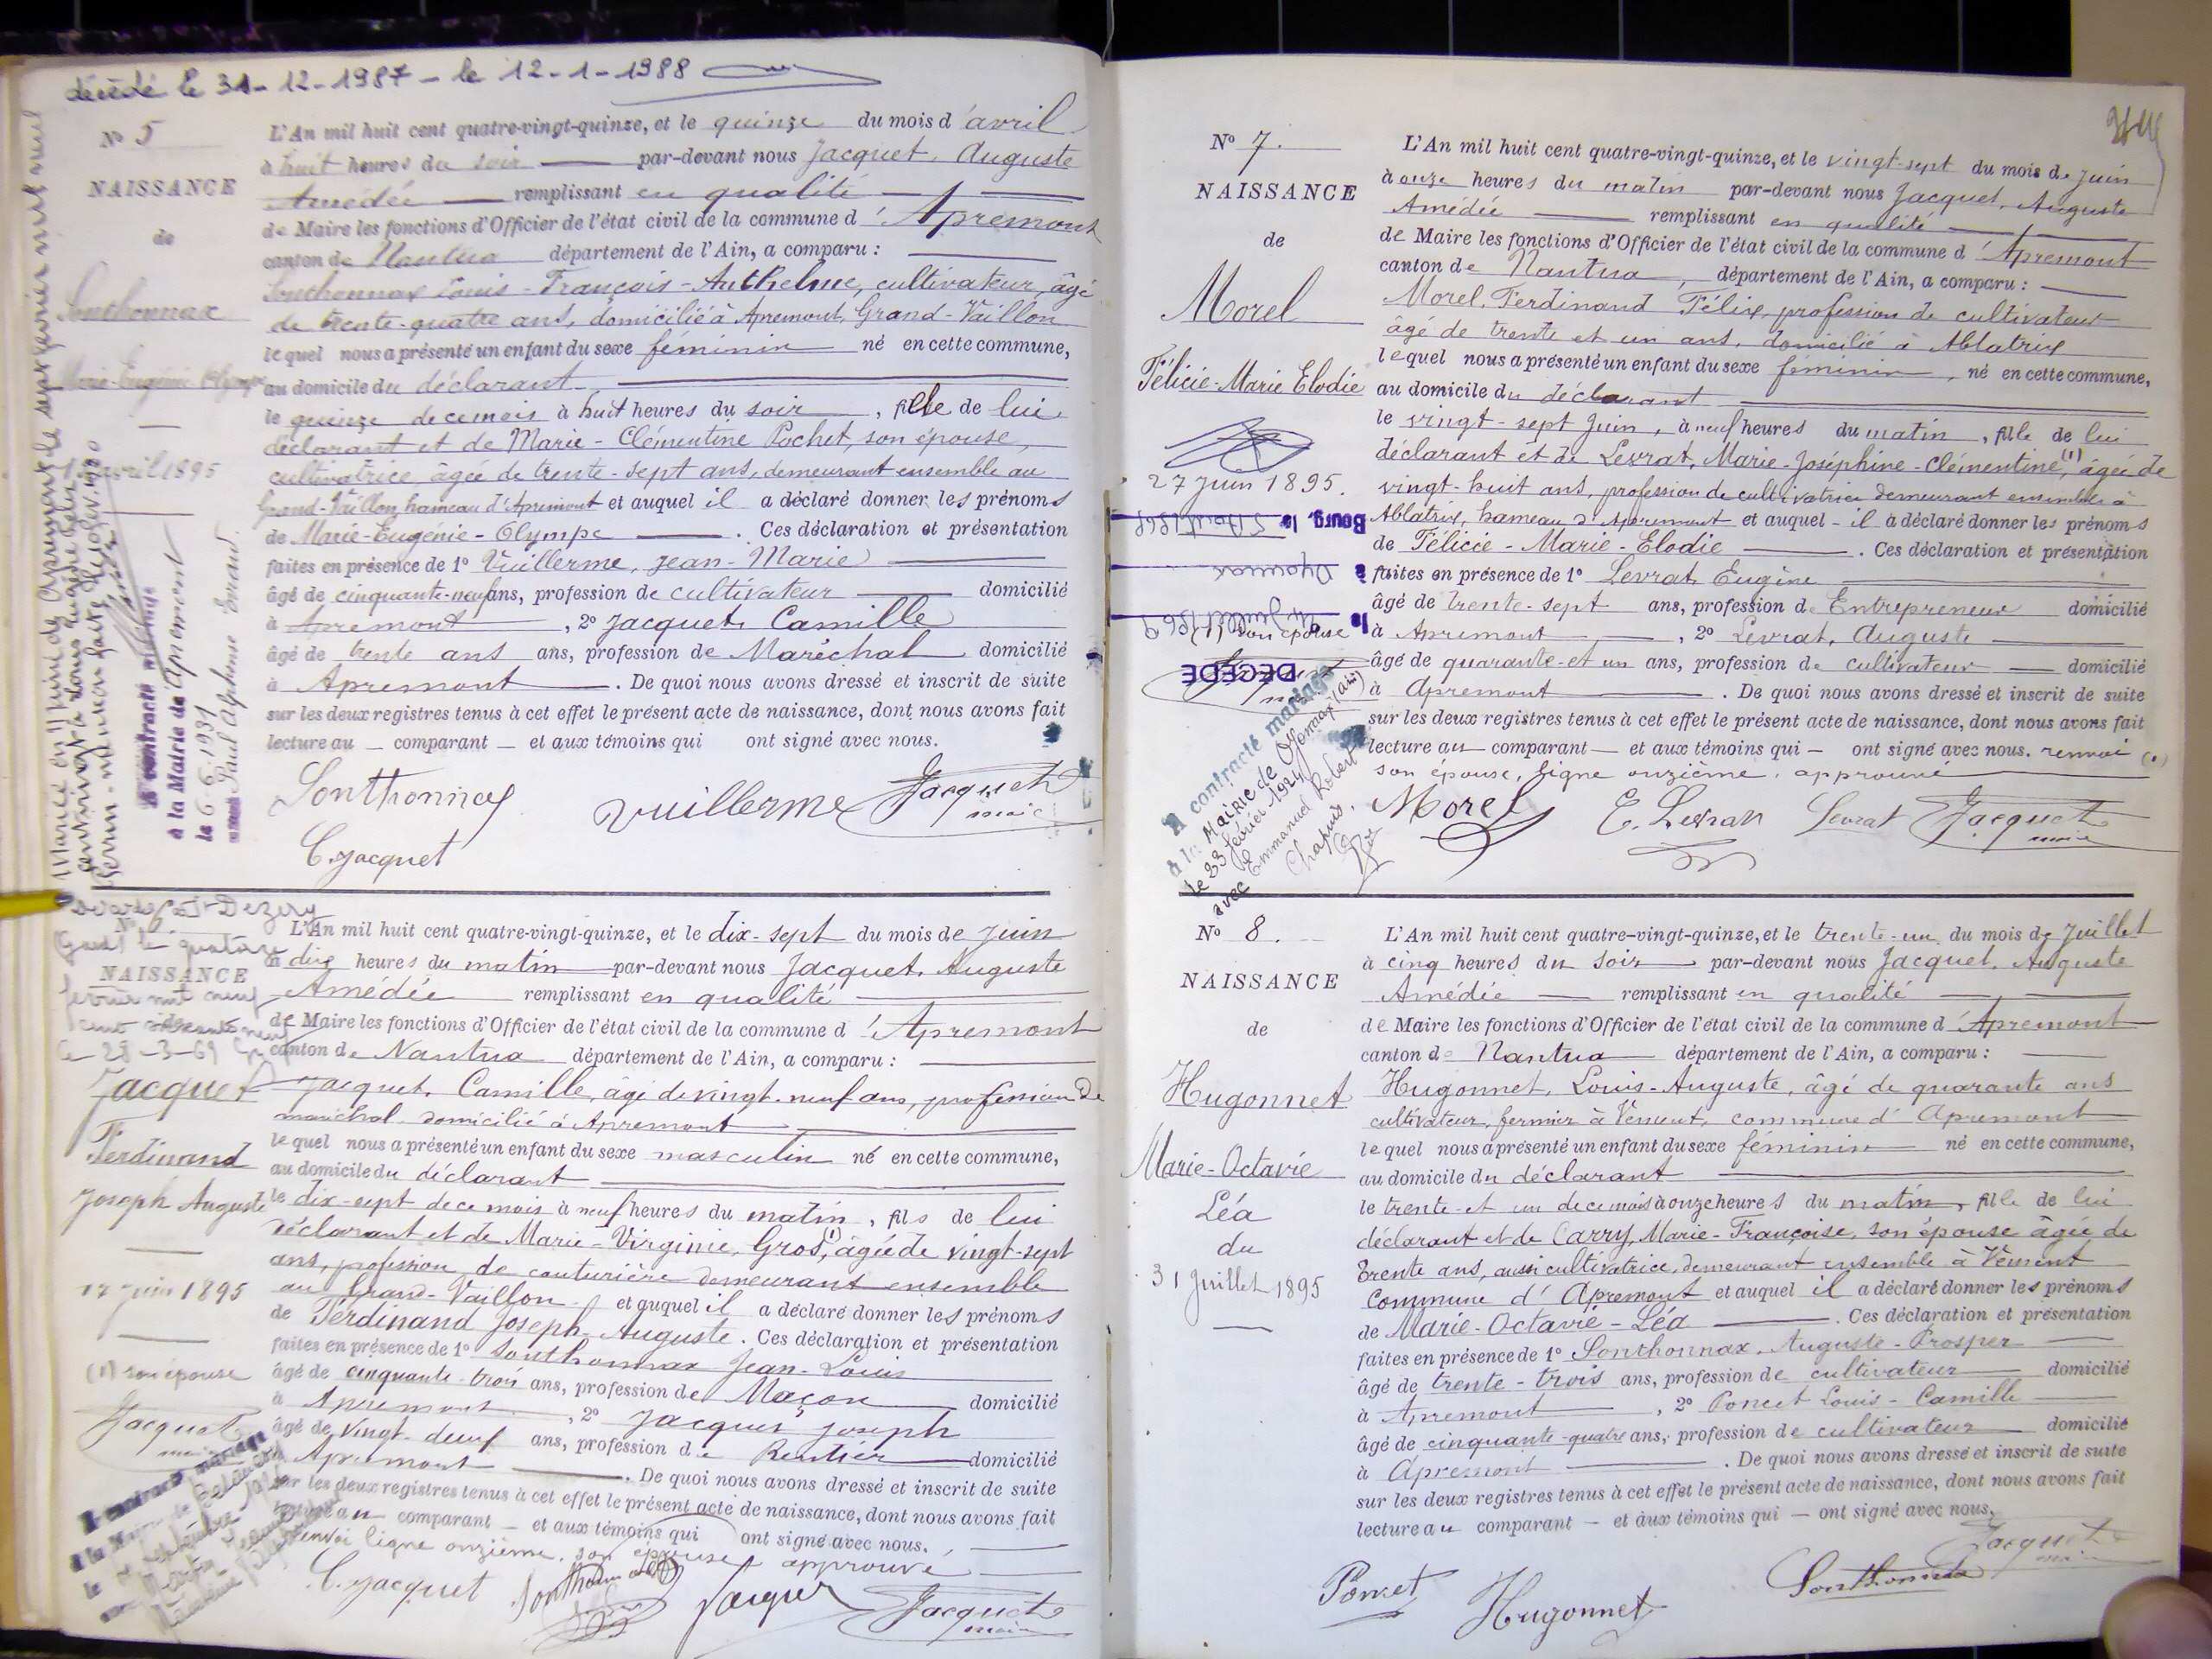 décédé le 31-12-1987 - le 12-1-1988
N° 5
NAISSANCE
de
Sonthonnax
Marie-Eugénie Olympe
15 avril 1895
A contracté mariage
à la Mairie de Apremont
le 6-6-1931
avec Paul Alphonse Evrard.
L'An mil huit cent quatre-vingt-quinze, et le quinze du mois d'avril
à huit heures du soir par-devant nous Jacquet, Auguste
Amédée remplissant en qualité
de Maire les fonctions d'Officier de l'état civil de la commune d'Apremont
canton de Nantua département de l'Ain, a comparu :
Sonthonnax Louis-François-Anthelme, cultivateur, âgé
de trente-quatre ans, domicilié à Apremont, Grand-Vaillon
lequel nous a présenté un enfant du sexe féminin né en cette commune,
au domicile du déclarant
le quinze de ce mois à huit heures du soir, fille de lui
déclarant et de Marie-Clémentine Pochet, son épouse,
cultivatrice âgée de trente-sept ans, demeurant ensemble au
Grand-Vaillon, hameau d'Apremont et auquel il a déclaré donner les prénoms
de Marie-Eugénie-Olympe. Ces déclaration et présentation
faites en présence de 1° Vuillerme, Jean-Marie
âgé de cinquante-neuf ans, profession de cultivateur domicilié
à Apremont, 2° Jacquet, Camille
âgé de trente ans ans, profession de Maréchal domicilié
à Apremont. De quoi nous avons dressé et inscrit de suite
sur les deux registres tenus à cet effet le présent acte de naissance, dont nous avons fait
lecture au comparant et aux témoins qui ont signé avec nous.
Sonthonnax Vuillerme Jacquet
maire
C. Jacquet
N° 6
NAISSANCE
de
le 28-3-69
Jacquet
Ferdinand
Joseph Auguste
17 Juin 1895
(1) son épouse
Jacquet
maire
A contracté mariage
L'An mil huit cent quatre-vingt-quinze, et le dix-sept du mois de Juin
à dix heures du matin par-devant nous Jacquet, Auguste
Amédée remplissant en qualité
de Maire les fonctions d'Officier de l'état civil de la commune d'Apremont
canton de Nantua département de l'Ain, a comparu :
Jacquet, Camille, âgé de vingt-neuf ans, profession de
maréchal, domicilié à Apremont
lequel nous a présenté un enfant du sexe masculin né en cette commune,
au domicile du déclarant
le dix-sept de ce mois à neuf heures du matin, fils de lui
déclarant et de Marie-Virginie, Gros,(1) âgée de vingt-sept
ans, profession de couturière demeurant ensemble
au Grand-Vaillon et auquel il a déclaré donner les prénoms
de Ferdinand Joseph-Auguste. Ces déclaration et présentation
faites en présence de 1° Sonthonnax Jean-Louis
âgé de cinquante-trois ans, profession de Maçon domicilié
à Apremont, 2° Jacquet Joseph
âgé de vingt-deux ans, profession de Rentier domicilié
à Apremont. De quoi nous avons dressé et inscrit de suite
sur les deux registres tenus à cet effet le présent acte de naissance, dont nous avons fait
lecture au comparant et aux témoins qui ont signé avec nous.
renvoi ligne onzième, son épouse, approuvé
C. Jacquet Sonthonnax Jacquet Jacquet
maire
N° 7.
NAISSANCE
de
Morel
Félicie-Marie Elodie
27 Juin 1895.
Bourg, le 5 Août 1969
à Oyonnax
le 14 Juillet 1969
DÉCÉDÉ
(1) son épouse
A contracté mariage
à la Mairie de Oyonnax (Ain)
le 23 février 1924
avec Emmanuel Robert
Chapuis.
L'An mil huit cent quatre-vingt-quinze, et le vingt-sept du mois de Juin
à onze heures du matin par-devant nous Jacquet, Auguste
Amédée remplissant en qualité
de Maire les fonctions d'Officier de l'état civil de la commune d'Apremont
canton de Nantua, département de l'Ain, a comparu :
Morel, Ferdinand Félix, profession de cultivateur
âgé de trente et un ans, domicilié à Ablatrix
lequel nous a présenté un enfant du sexe féminin, né en cette commune,
au domicile du déclarant
le vingt-sept Juin, à neuf heures du matin, fille de lui
déclarant et de Levrat, Marie-Joséphine-Clémentine,(1) âgée de
vingt-huit ans, profession de cultivatrice demeurant ensemble à
Ablatrix, hameau d'Apremont et auquel il a déclaré donner les prénoms
de Félicie-Marie-Elodie. Ces déclaration et présentation
faites en présence de 1° Levrat, Eugène
âgé de trente-sept ans, profession de Entrepreneur domicilié
à Apremont, 2° Levrat, Auguste
âgé de quarante-et un ans, profession de cultivateur domicilié
à Apremont. De quoi nous avons dressé et inscrit de suite
sur les deux registres tenus à cet effet le présent acte de naissance, dont nous avons fait
lecture au comparant et aux témoins qui ont signé avec nous. renvoi (1)
son épouse, ligne onzième, approuvé
Morel E. Levrat Levrat Jacquet
maire
N° 8.
NAISSANCE
de
Hugonnet
Marie-Octavie
Léa
du
31 Juillet 1895
L'An mil huit cent quatre-vingt-quinze, et le trente-un du mois de Juillet
à cinq heures du soir par-devant nous Jacquet, Auguste
Amédée remplissant en qualité
de Maire les fonctions d'Officier de l'état civil de la commune d'Apremont
canton de Nantua département de l'Ain, a comparu :
Hugonnet, Louis-Auguste, âgé de quarante ans
cultivateur, fermier à Vément, commune d'Apremont
lequel nous a présenté un enfant du sexe féminin né en cette commune,
au domicile du déclarant
le trente-et un de ce mois à onze heures du matin, fille de lui
déclarant et de Carry, Marie-Françoise, son épouse âgée de
trente ans, aussi cultivatrice, demeurant ensemble à Vément
commune d'Apremont et auquel il a déclaré donner les prénoms
de Marie-Octavie-Léa. Ces déclaration et présentation
faites en présence de 1° Sonthonnax, Auguste-Prosper
âgé de trente-trois ans, profession de cultivateur domicilié
à Apremont, 2° Poncet Louis-Camille
âgé de cinquante-quatre ans, profession de cultivateur domicilié
à Apremont. De quoi nous avons dressé et inscrit de suite
sur les deux registres tenus à cet effet le présent acte de naissance, dont nous avons fait
lecture au comparant et aux témoins qui ont signé avec nous.
Poncet Hugonnet Sonthonnax Jacquet
maire